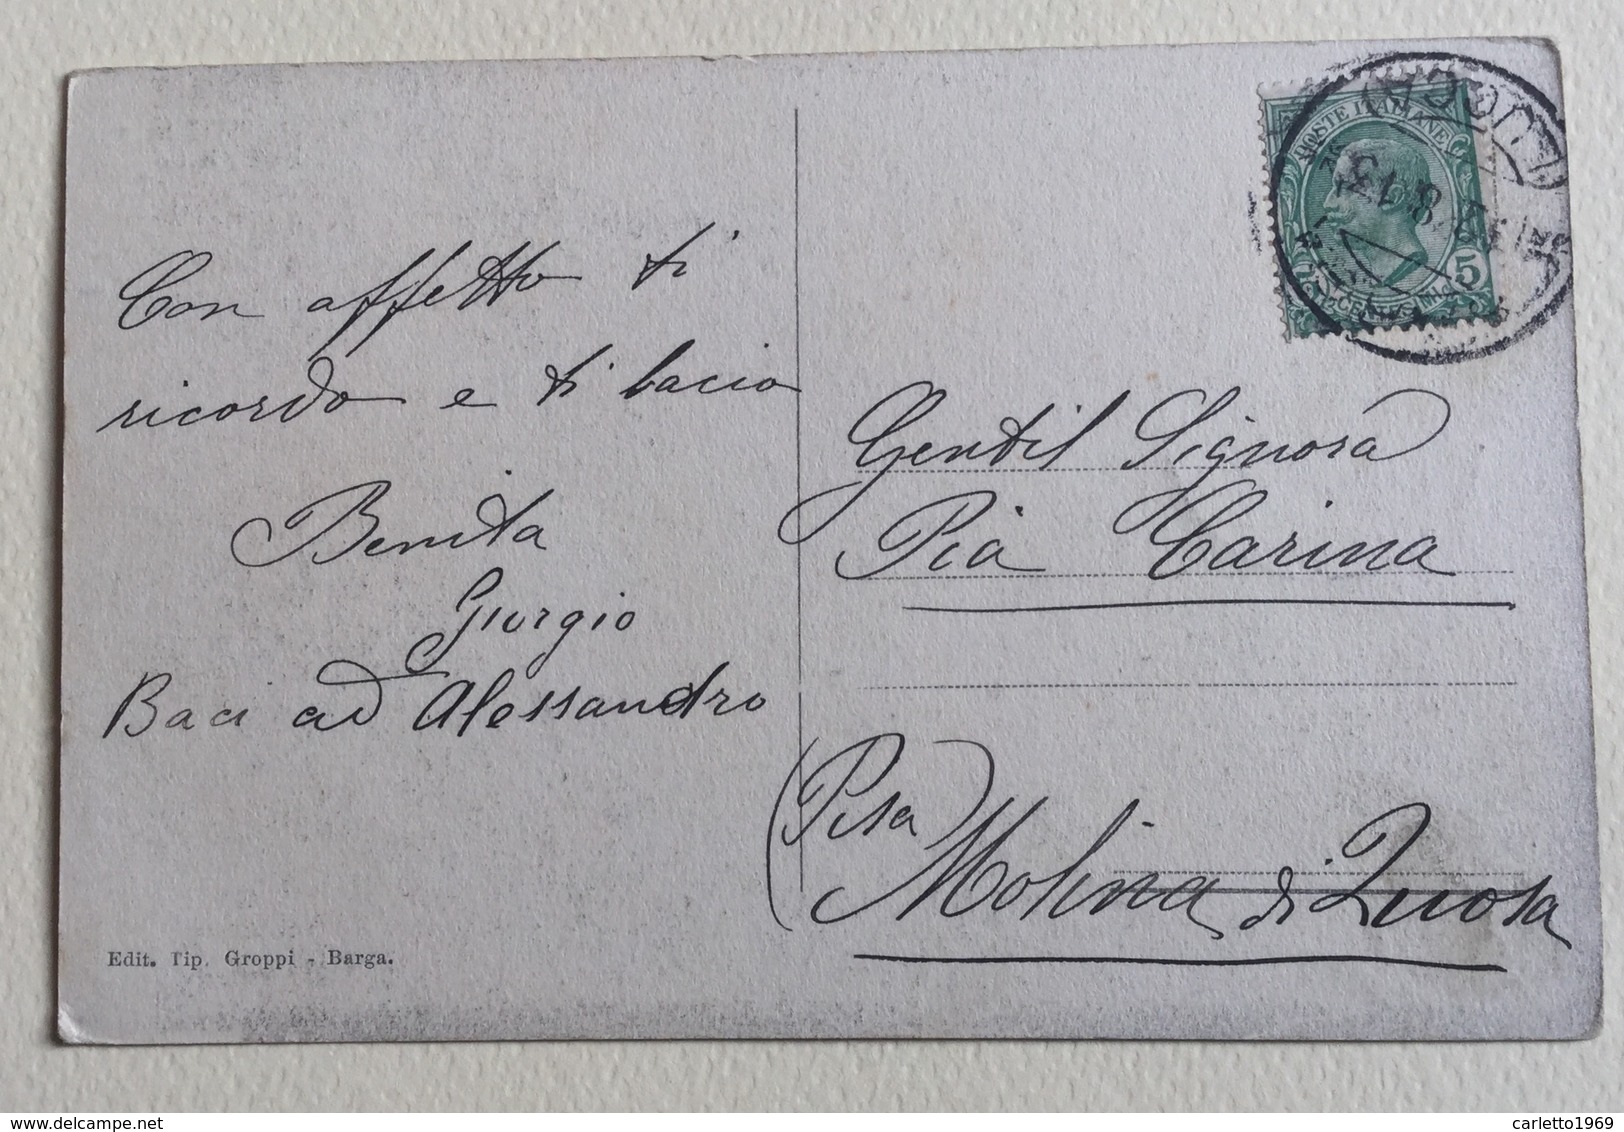 Con affetto ti
ricordo e ti bacio
Benita
Giorgio
Baci ad Alessandro
Edit. Tip. Groppi - Barga.
POSTE ITALIANE
5
8.13
LUCCA
Gentil Signora
Pia Carina
(Pisa)
Molina di Quosa
delcampe.net
carletto1969